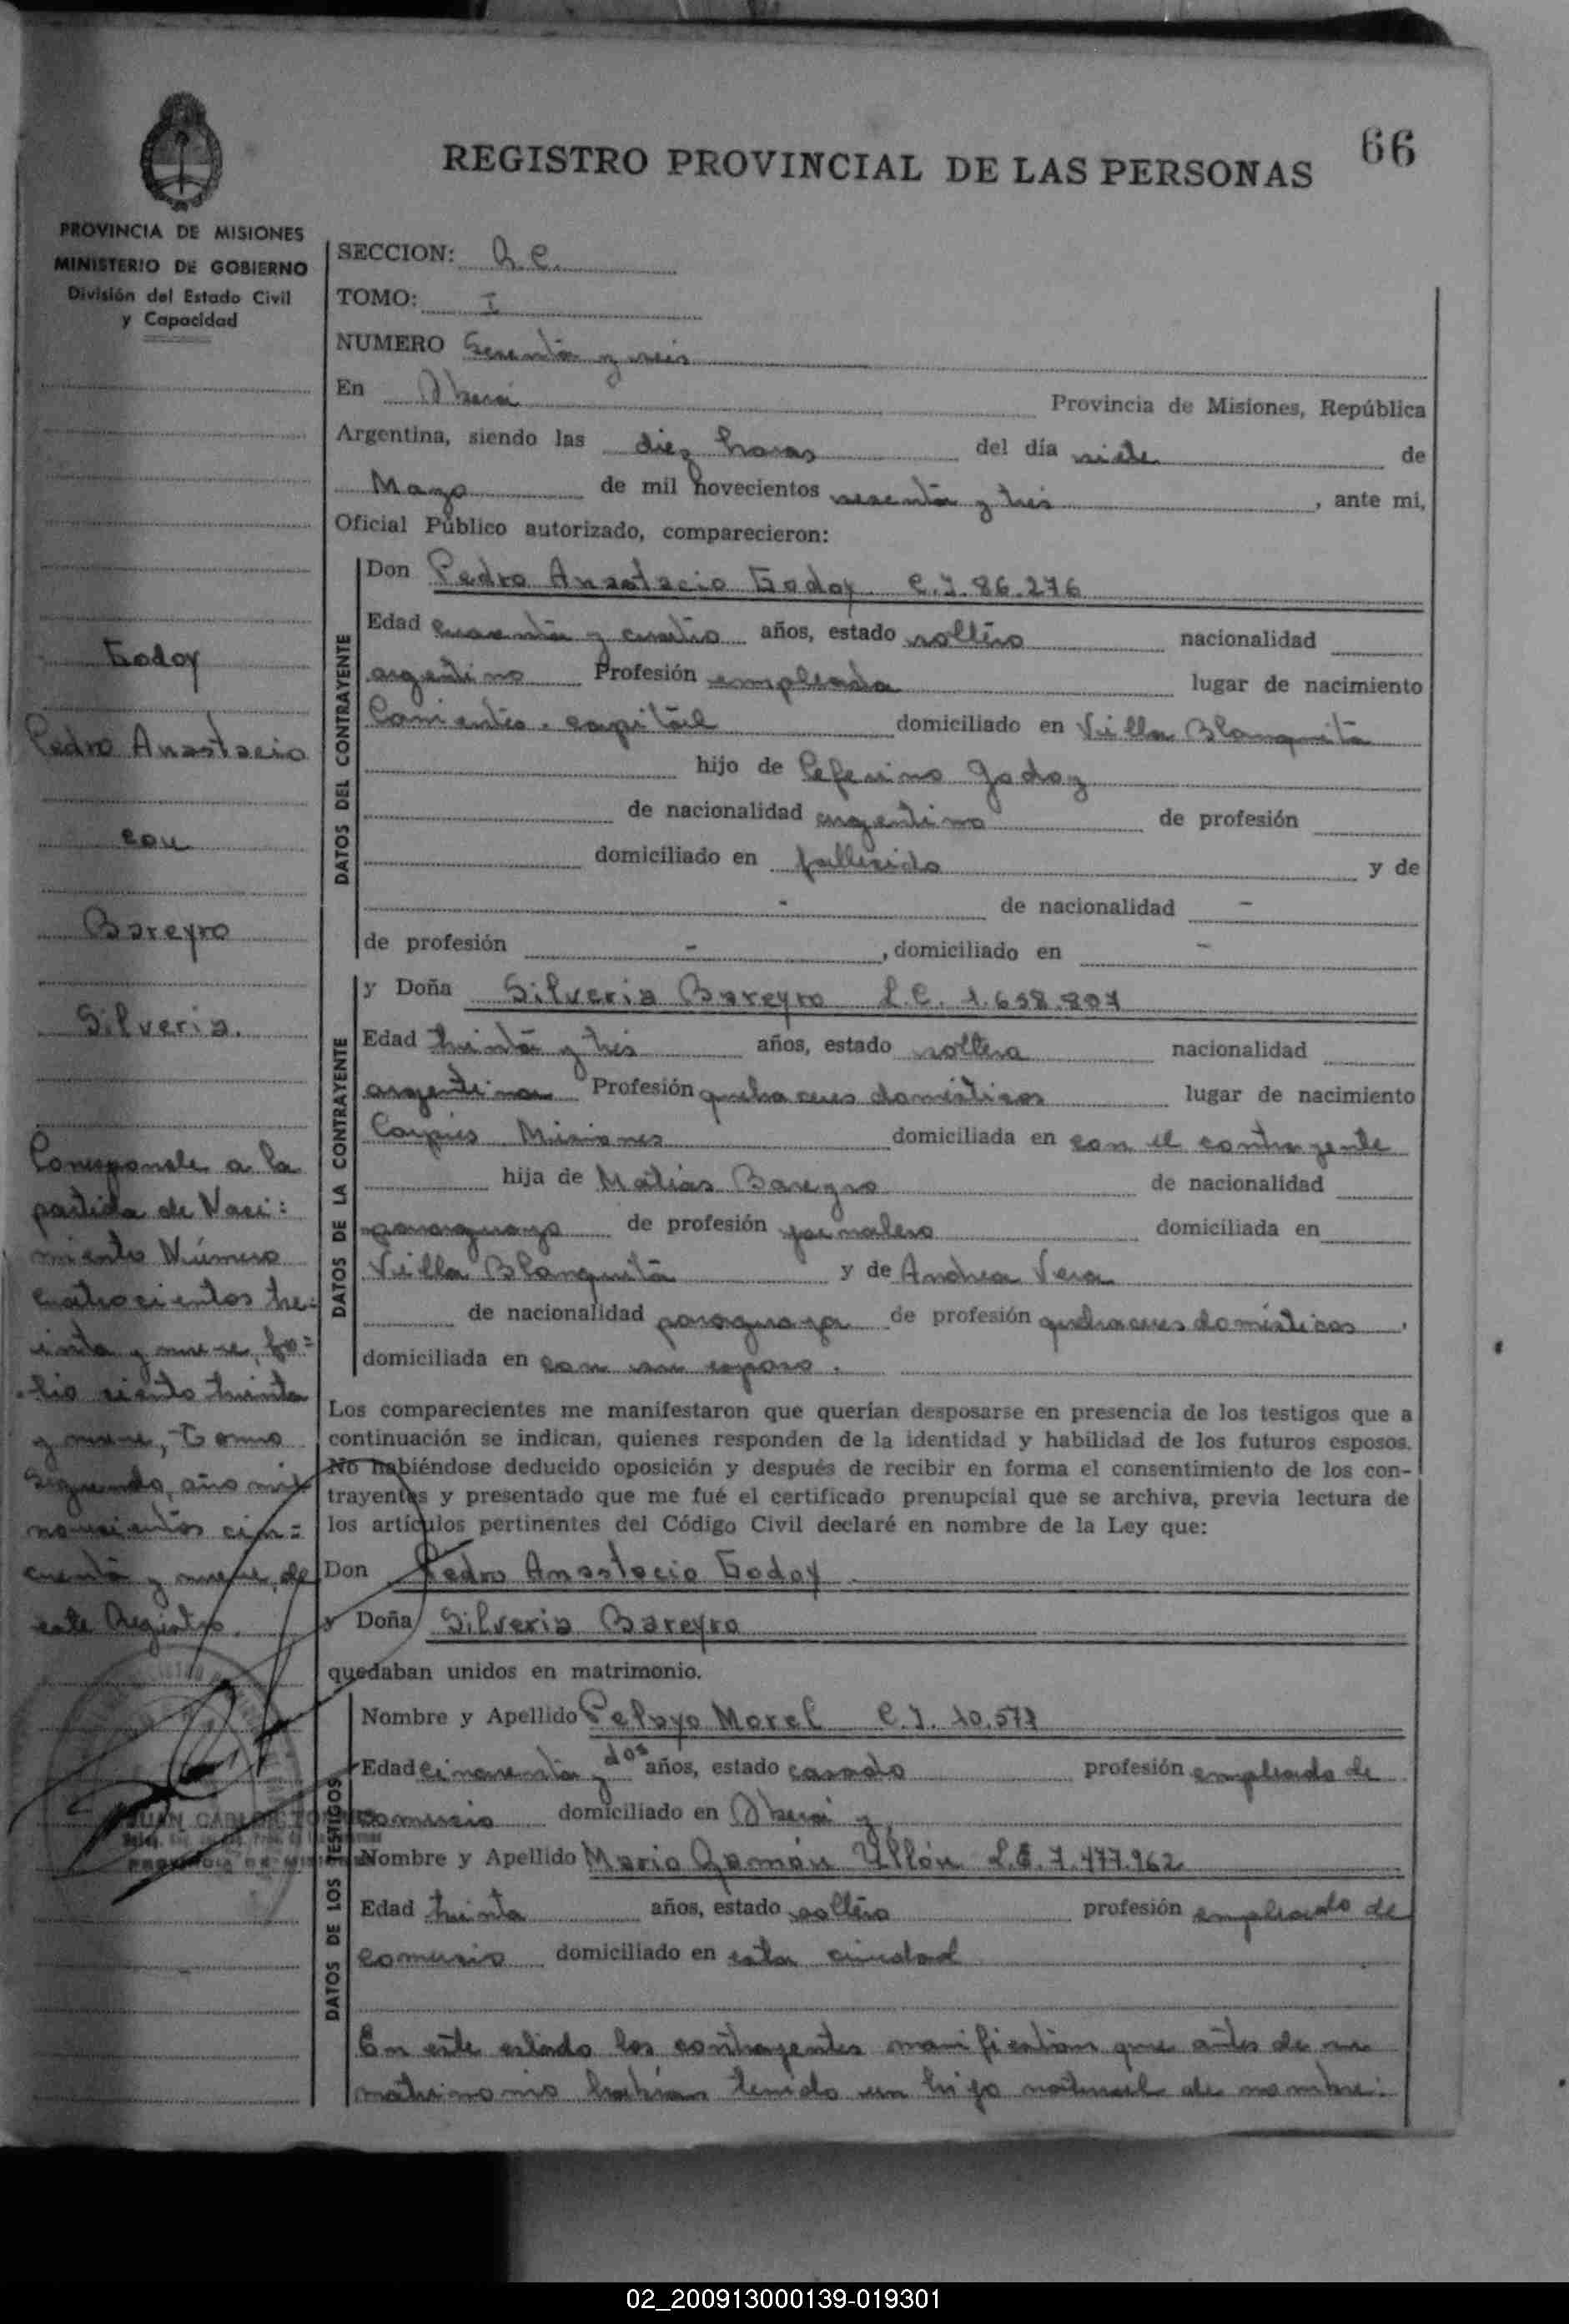 66
REGISTRO PROVINCIAL DE LAS PERSONAS
PROVINCIA DE MISIONES
MINISTERIO DE GOBIERNO
División del Estado Civil
y Capacidad
Godoy
Pedro Anastacio
con
Bareyro
Silveria.
Corresponde a la
partida de Naci=
miento Número
cuatrocientos tre=
inta y nueve, fo=
lio ciento treinta
y nueve, Tomo
Segundo, año mil
novecientos cin=
cuenta y nueve, de
este Registro.
SECCION:
TOMO: I
NUMERO Sesenta y seis
En Oberá Provincia de Misiones, República
Argentina, siendo las diez horas del día siete de
Mayo de mil novecientos sesenta y tres, ante mi,
Oficial Público autorizado, comparecieron:
DATOS DEL CONTRAYENTE
Don Pedro Anastacio Godoy C.I. 86.276
Edad cuarenta y cuatro años, estado soltero nacionalidad
argentino Profesión empleado lugar de nacimiento
Corrientes - capital domiciliado en Villa Blanquita
hijo de Ceferino Godoy
de nacionalidad argentino de profesión
domiciliado en fallecido y de
- de nacionalidad -
de profesión - , domiciliado en -
DATOS DE LA CONTRAYENTE
y Doña Silveria Bareyro L.C. 1.658.807
Edad treinta y tres años, estado soltera nacionalidad
argentina Profesión quehaceres domésticos lugar de nacimiento
Corpus Misiones domiciliada en con el contrayente
hija de Matías Bareyro de nacionalidad
paraguayo de profesión jornalero domiciliada en
Villa Blanquita y de Andrea Vera
de nacionalidad paraguaya de profesión quehaceres domésticos,
domiciliada en con su esposo.
Los comparecientes me manifestaron que querían desposarse en presencia de los testigos que a
continuación se indican, quienes responden de la identidad y habilidad de los futuros esposos.
No habiéndose deducido oposición y después de recibir en forma el consentimiento de los con-
trayentes y presentado que me fué el certificado prenupcial que se archiva, previa lectura de
los artículos pertinentes del Código Civil declaré en nombre de la Ley que:
Don Pedro Anastacio Godoy
y Doña Silveria Bareyro
quedaban unidos en matrimonio.
DATOS DE LOS TESTIGOS
Nombre y Apellido Pelayo Morel C.I. 10.577
Edad cincuenta y dos años, estado casado profesión empleado de
comercio domiciliado en Oberá y
Nombre y Apellido Mario Ramón Ullón L.E. 7.477.962
Edad treinta años, estado soltero profesión empleado de
comercio domiciliado en esta ciudad
En este estado los contrayentes manifiestan que antes de su
matrimonio habían tenido un hijo natural de nombre:
JUAN CARLOS
PROVINCIA DE MISIONES
02_200913000139-019301